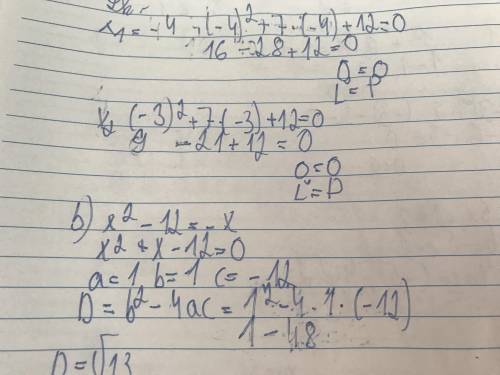 x₁ = -4 → (-4)² + 7·(-4) + 12 = 0
16 - 28 + 12 = 0
0 = 0
L = P
x₂ (-3)² + 7·(-3) + 12 = 0
9 - 21 + 12 = 0
0 = 0
L = P
b) x² - 12 = -x
x² + x - 12 = 0
a = 1 b = 1 c = -12
D = b² - 4ac = 1² - 4·1·(-12)
1 - 48